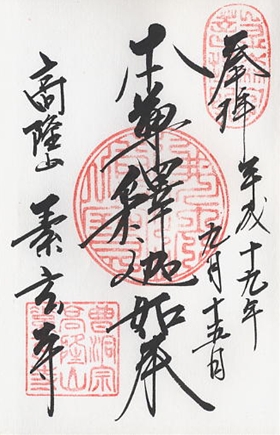 奉拝 平成十九年
九月十五日
本尊釋迦如来
高隆山 素玄寺
曹洞宗
高隆山